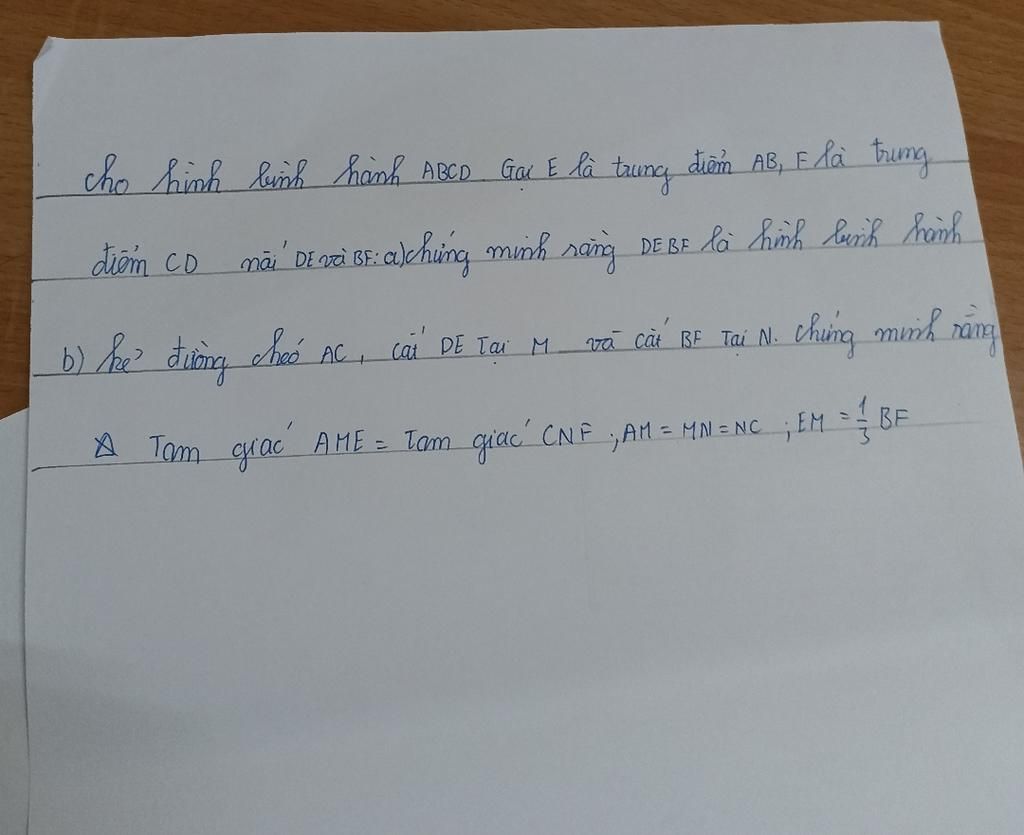 cho hình bình hành ABCD. Gọi E là trung điểm AB, F là trung
điểm CD nối DE và BF: a) chứng minh rằng DEBF là hình bình hành
b) kẻ đường chéo AC, cắt DE Tại M và cắt BF Tại N. chứng minh rằng
Δ Tam giác AME = Tam giác CNF ; AM = MN = NC ; EM = 1/3 BF